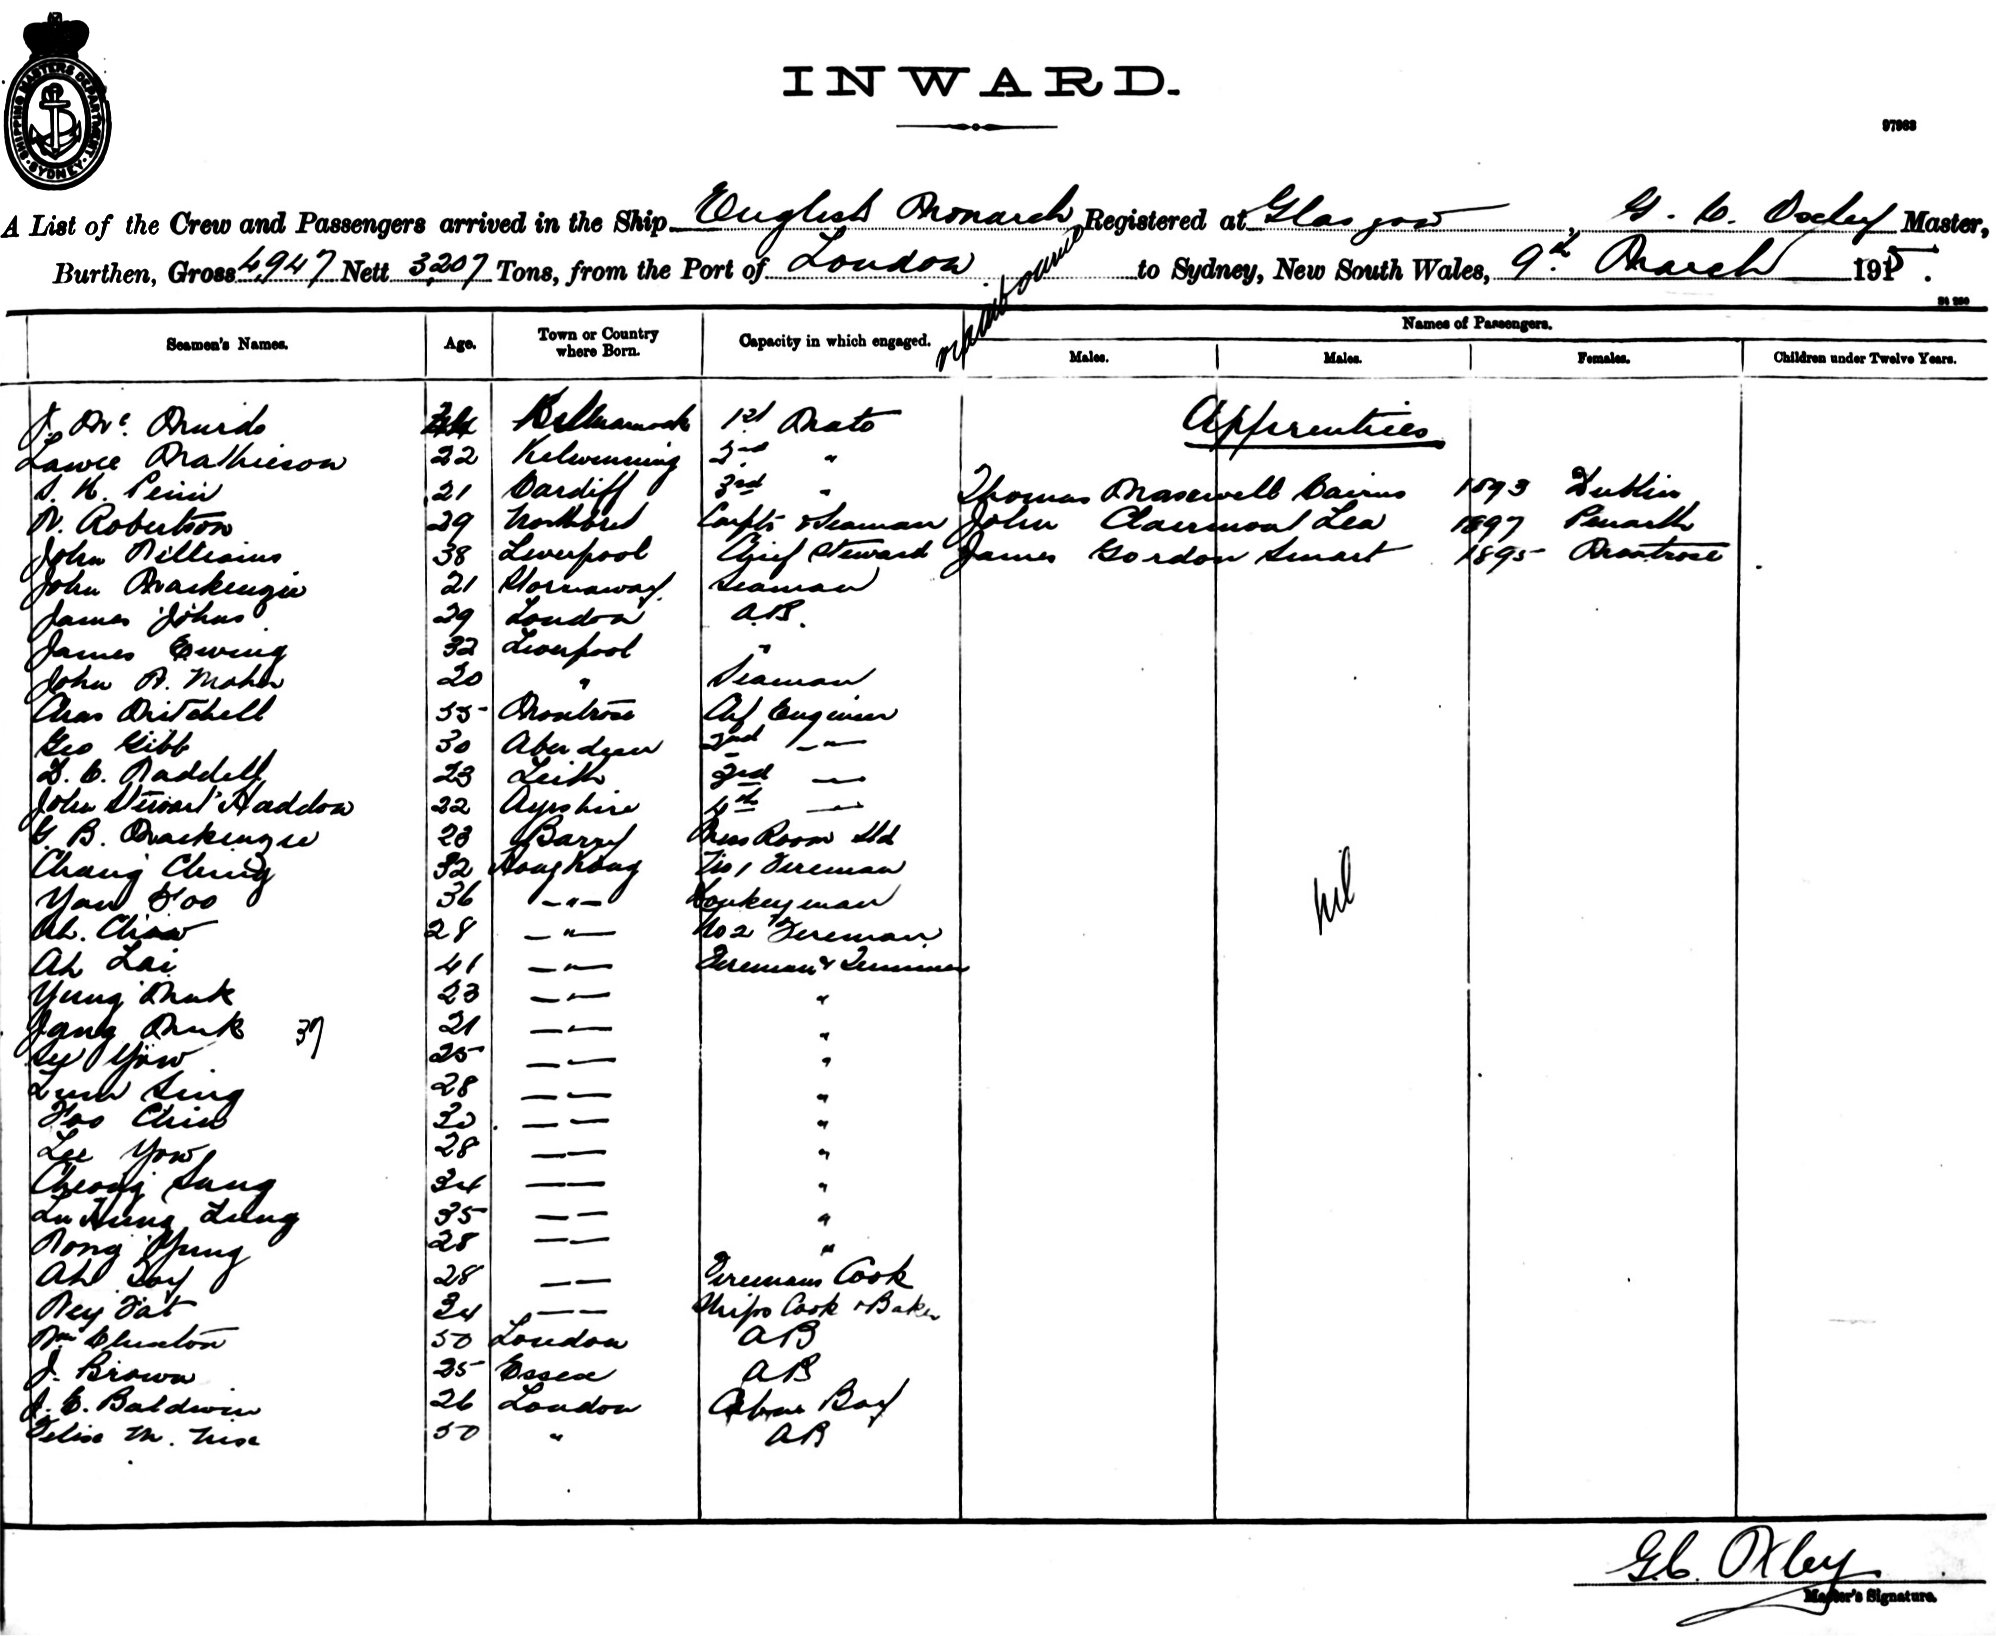 SHIPPING MASTERS DEPARTMENT SYDNEY
INWARD.
97963
A List of the Crew and Passengers arrived in the Ship English Monarch Registered at Glasgow, G. C. Oxley Master,
Burthen, Gross 4,947 Nett 3,207 Tons, from the Port of London to Sydney, New South Wales, 9th March 1915.
Seamen's Names. Age. Town or Country where Born. Capacity in which engaged. Names of Passengers.
Males. Males. Females. Children under Twelve Years.
J. Mc. Murdo Kilmarnock 1st Mate Apprentices
Mathieson 22 Kilwinning 2nd "
21 Cardiff 3rd " Thomas Maxwell Cairns 1893 Dublin
W. Robertson 29 & Seaman John Lea 1897 Penarth
John Williams 38 Liverpool Chief Steward James Gordon Smart 1895 Montrose
John Mackenzie 21 Stornaway Seaman
James Johns 29 London A.B.
James Ewing 32 Liverpool "
John W. 20 " Seaman
Chas Mitchell 55 Montrose Chf Engineer
Geo Gibb 30 Aberdeen 2nd — " —
Waddell 23 Leith 3rd —
John Stewart Haddow 22 Ayrshire 4th —
G. B. Mackenzie 23 Barry Mess Room Std
Chang Ching 32 Hong Kong No 1 Fireman
Yan Foo 36 — " — Donkeyman
Ah. Chow 28 — " — No 2 Fireman
Ah Lai 41 — " — Fireman & Trimmer
Yung Muk 23 — " — "
Jang Muk 37 21 — " — "
See Yow 25 — — "
Sing 28 — — "
Foo Chin 30 — — "
Lee Yow 28 — — "
Cheong Sang 34 — — "
Lung 35 — — "
Wong Yung 28 — — "
Ah Toy 28 — — Firemans Cook
Wey Fat 34 — — Ships Cook & Baker
Wm 50 London AB
J. Brown 25 Essex AB
J. E. Baldwin 26 London Cabin Boy
Felix M. 50 " AB
nil
G. C. Oxley
Master's Signature.